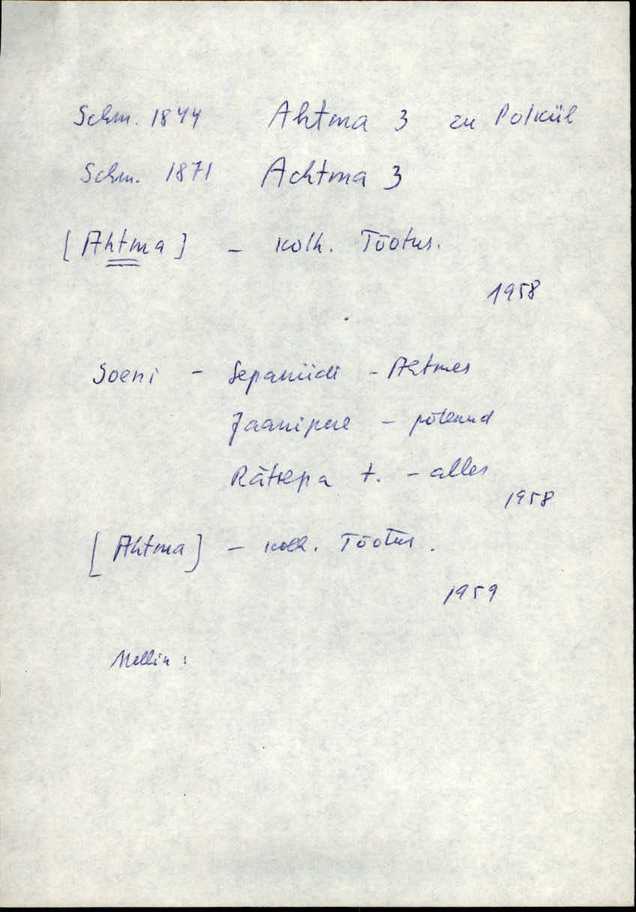 Schm. 1844 Ahtma 3 zu Polküll
Schm. 1871 Achtma 3
[Ahtma] – kolh. Töötus.
1958
Soeni – Sepaniidi – Ahtmes
Jaanipere – põlenud
Rätsepa t. – alles
1958
[Ahtma] – kolh. Töötus.
1959
Mellin: